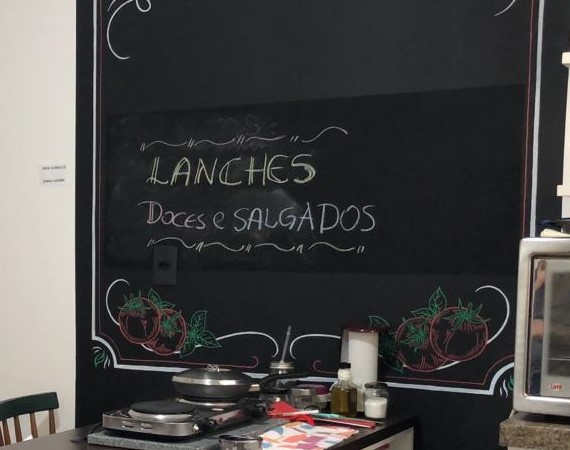 LANCHES
DOCES e SALGADOS